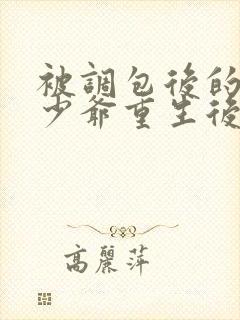 被調包後的
少爺重生後
高麗萍